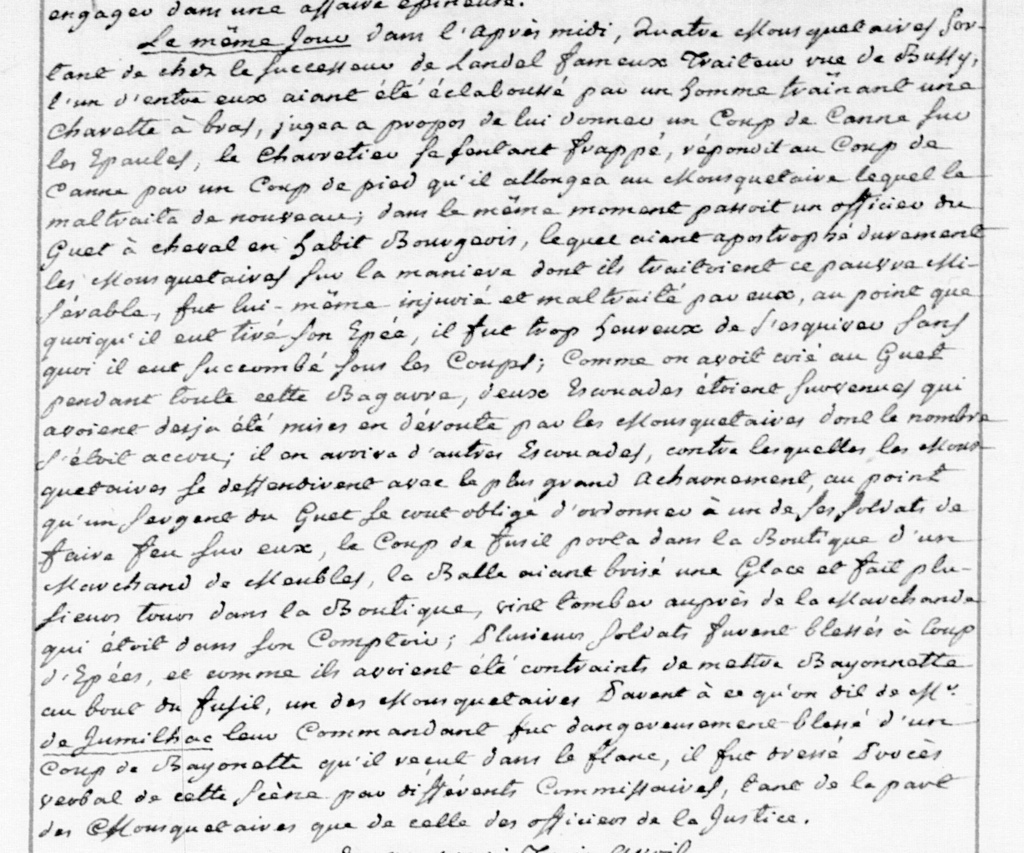 engager dans une affaire épineuse.
Le même Jour dans l'après midi, Quatre Mousquetaires sor-
tant de chez le successeur de Landel fameux Traiteur rue de Bussy,
l'un d'entre eux aiant été éclaboussé par un homme traînant une
charette à bras, jugea a propos de lui donner un Coup de Canne sur
les Epaules, le Charretier se sentant frappé, répondit au Coup de
Canne par un Coup de pied qu'il allongea au Mousquetaire lequel le
maltraita de nouveau; dans le même moment passoit un officier du
Guet à cheval en habit Bourgeois, lequel aiant apostrophé durement
les Mousquetaires sur la maniere dont ils traitoient ce pauvre Mi-
sérable, fut lui-même injurié et maltraité par eux, au point que
quoiqu'il eut tiré son Epée, il fut trop heureux de s'esquiver sans
quoi il eut succombé sous les Coups; Comme on avoit crié au Guet
pendant toute cette Bagarre, deux Escouades étoient survenues qui
avoient desja été mises en déroute par les Mousquetaires dont le nombre
s'étoit accru; il en arriva d'autres Escouades, contre lesquelles les Mous-
quetaires se deffendirent avec le plus grand Acharnement, au point
qu'un Sergent du Guet se crut obligé d'ordonner à un de ses soldats de
faire feu sur eux, le Coup de fusil porta dans la Boutique d'un
Marchand de Meubles, la Balle aiant brisé une Glace et fait plu-
sieurs tours dans la Boutique, vint tomber auprès de la Marchande
qui étoit dans son Comptoir; Plusieurs soldats furent blessés à Coup
d'Epées, et comme ils avoient été contraints de mettre Bayonnette
au bout du fusil, un des Mousquetaires Parent à ce qu'on dit de Mr.
de Jumilhac leur Commandant fut dangereusement blessé d'un
Coup de Bayonette qu'il reçut dans le flanc, il fut dressé Procès
verbal de cette Scène par différents Commissaires, tant de la part
des Mousquetaires que de celle des officiers de la Justice.